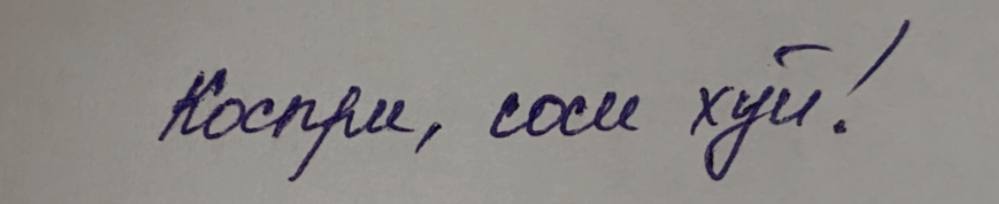 Коспри, соси хуй!